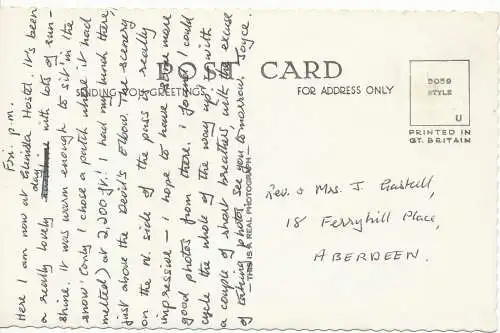 Fri. p.m.
Here I am now at Glenisla Hostel. It's been
a really lovely day with lots of sun-
shine. It was warm enough to sit in the
snow (only I chose a patch where it had
melted) at 2,200 ft! I had my lunch there,
just above the Devil's Elbow. The scenery
on the N. side of the pass is really
impressive – I hope to have some more
good photos from there. I found I could
cycle the whole of the way up, with
a couple of short breathers, with the excuse
of taking photos. See you tomorrow. Joyce.
POST CARD
SENDING YOU GREETINGS
FOR ADDRESS ONLY
5059
STYLE
U
PRINTED IN
GT. BRITAIN
THIS IS A REAL PHOTOGRAPH
Rev. & Mrs. J.
18 Ferryhill Place,
ABERDEEN.